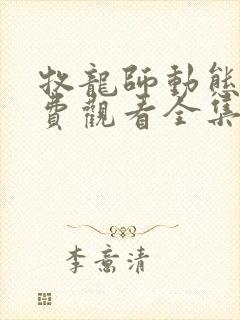 牧龍師動態
費觀看全集
李意清